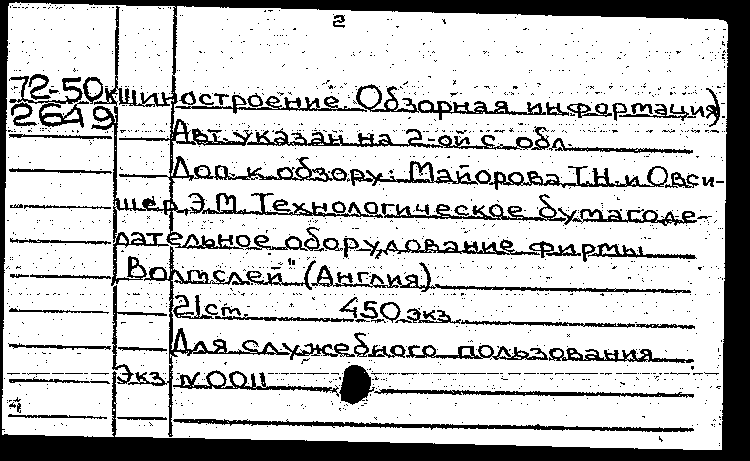 2
72-50к шиностроение. Обзорная информация)
2649
Авт. указан на 2-ой с. обл.
Доп. к обзору: Майорова, Т.Н. и Овси-
шер, Э.М. Технологическое бумагоде-
лательное оборудование фирмы
"Волмслей" (Англия).
21 ст. 450 экз.
Для служебного пользования
Экз. N 0011